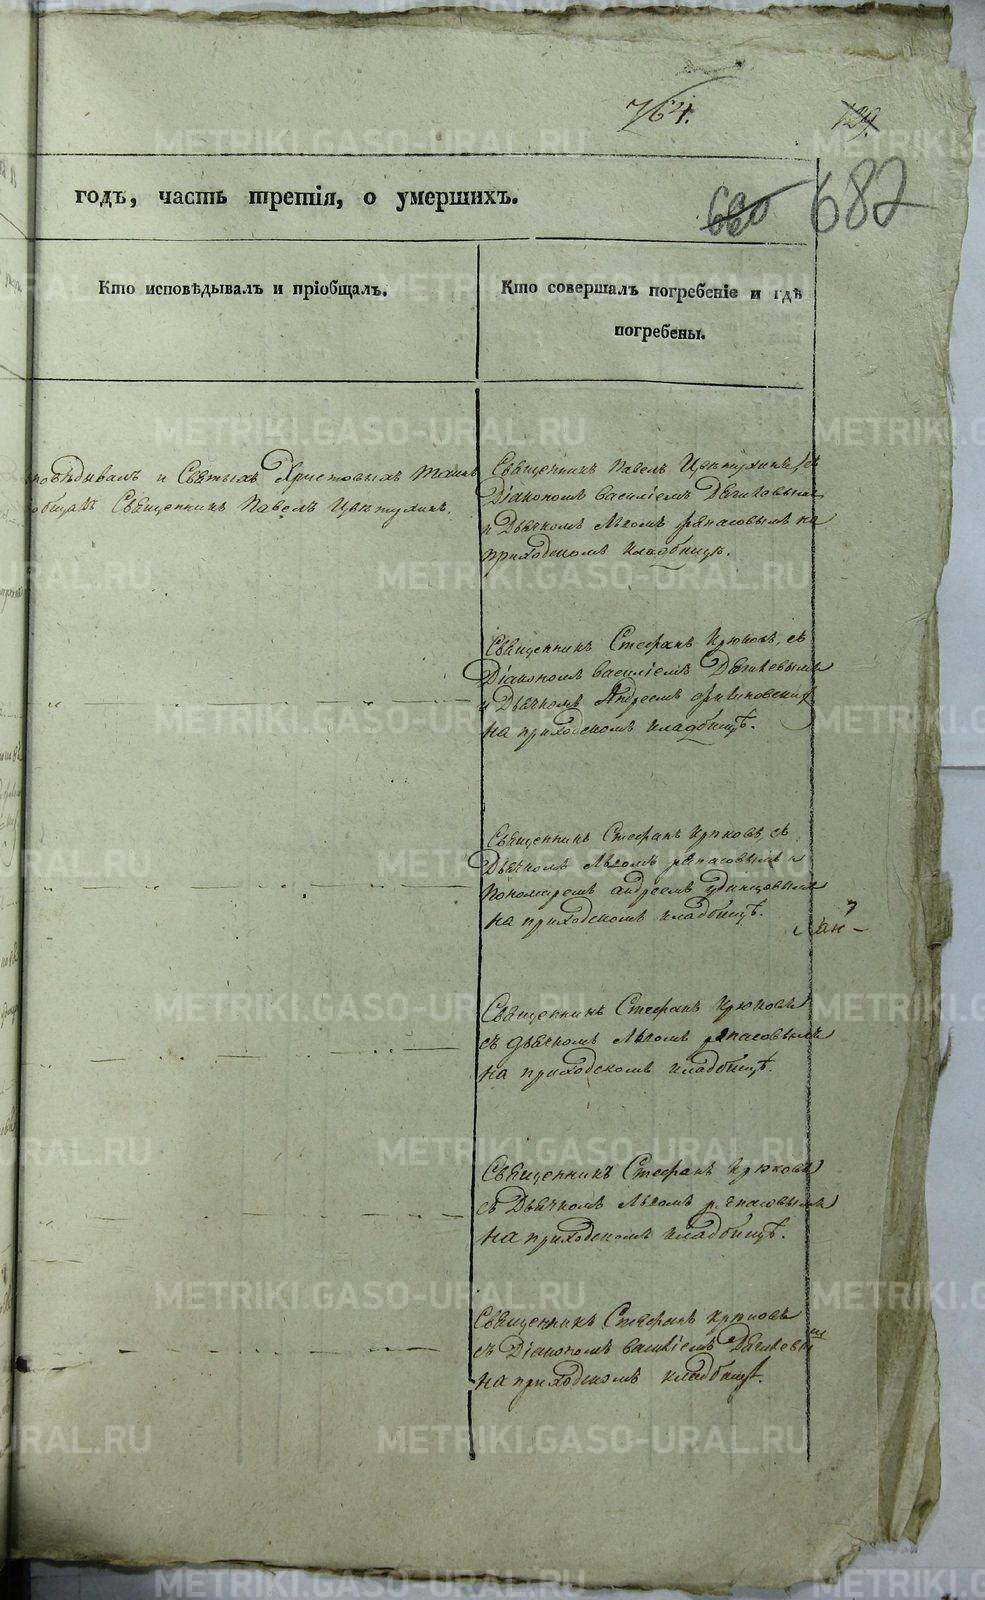 764.
129.
680 682
годъ, часть третія, о умершихъ.
Кто исповѣдывалъ и пріобщалъ.
Кто совершалъ погребеніе и гдѣ
погребены.
повѣдывалъ и Святыхъ Христовыхъ Таинъ
общалъ Священникъ Павелъ Цвѣтухинъ.
Священникъ Павелъ Цвѣтухинъ съ
Діакономъ Василіемъ
и Дьячкомъ на
приходскомъ кладбищѣ.
Священникъ Стефанъ Крюковъ, съ
Діакономъ Василіемъ
и Дьячкомъ Андреемъ
на приходскомъ кладбищѣ.
Священникъ Стефанъ Крюковъ, съ
Дьячкомъ и
Пономаремъ Андреемъ Удинцовымъ
на приходскомъ кладбищѣ.
Священникъ Стефанъ Крюковъ
съ дьячкомъ
на приходскомъ кладбищѣ.
Священникъ Стефанъ Крюковъ
съ Дьячкомъ
на приходскомъ кладбищѣ.
Священникъ Стефанъ Крюковъ
съ Діакономъ Василіемъ
на приходскомъ кладбищѣ.
METRIKI.GASO-URAL.RU